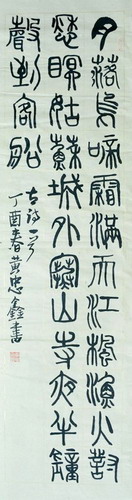 月落烏啼霜滿天江楓漁火對
愁眠姑蘇城外寒山寺夜半鐘
聲到客船
古詩一首
丁酉春黃忠鑫書